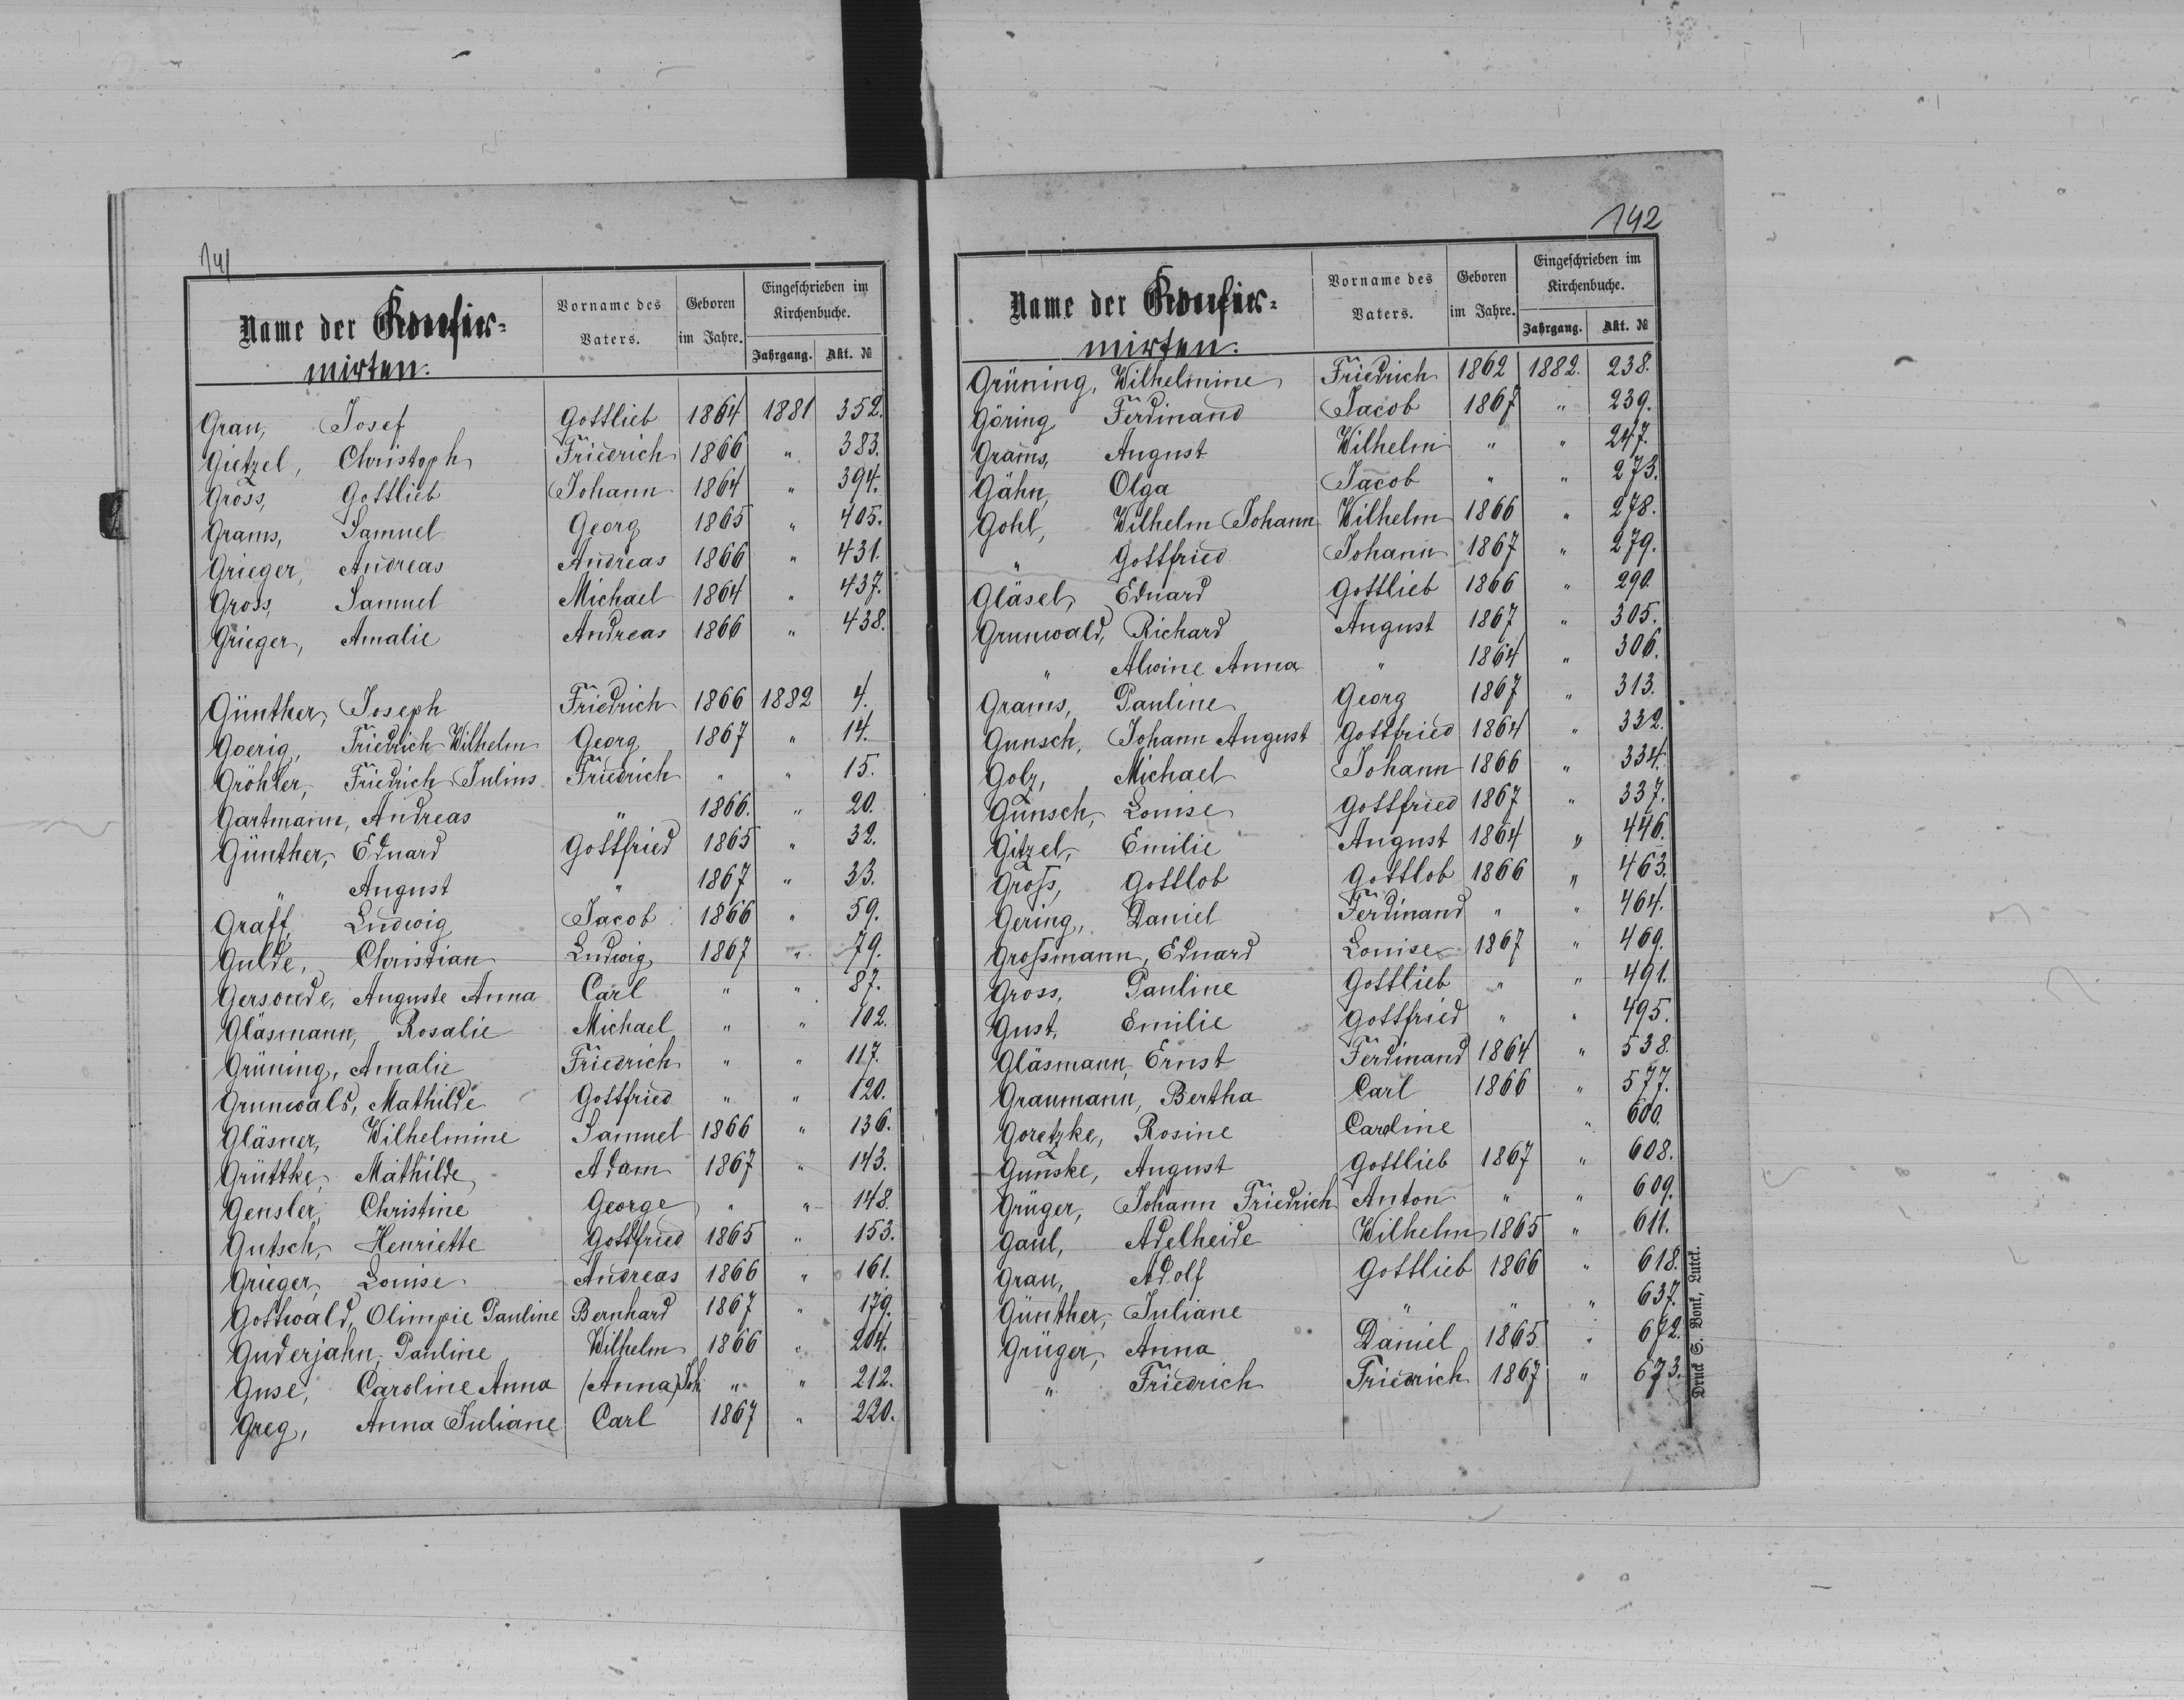 141
Name der Konfir=
mirten.
Vorname des Vaters.
Geboren im Jahre.
Eingeschrieben im Kirchenbuche.
Jahrgang. Akt. №
Grau, Josef Gottlieb 1864 1881 352.
Gietzel, Christoph Friedrich 1866 " 383.
Gross, Gottlieb Johann 1864 " 394.
Grams, Samuel Georg 1865 " 405.
Grieger, Andreas Andreas 1866 " 431.
Gross, Samuel Michael 1864 " 437.
Grieger, Amalie Andreas 1866 " 438.
Günther, Joseph Friedrich 1866 1882 4.
Goerig, Friedrich Wilhelm Georg 1867 " 14.
Gröhler, Friedrich Julius Friedrich " " 15.
Gartmann, Andreas " 1866. " 20.
Günther, Eduard Gottfried 1865 " 32.
" August " 1867 " 33.
Graff, Ludwig Jacob 1866 " 59.
Gulde, Christian Ludwig 1867 " 79.
Gersonde, Auguste Anna Carl " " 87.
Gläsmann, Rosalie Michael " " 102.
Grüning, Amalie Friedrich " " 117.
Grunwald, Mathilde Gottfried " " 120.
Gläsner, Wilhelmine Samuel 1866 " 136.
Grüttke, Mathilde Adam 1867 " 143.
Gensler, Christine George " " 148.
Gutsch, Henriette Gottfried 1865 " 153.
Grieger, Louise Andreas 1866 " 161.
Gottwald, Olimpie Pauline Bernhard 1867 " 179.
Guderjahn, Pauline Wilhelm 1866 " 204.
Guse, Caroline Anna (Anna) Joh " " 212.
Greg, Anna Juliane Carl 1867 " 220.
142
Name der Konfir=
mirten.
Vorname des Vaters.
Geboren im Jahre.
Eingeschrieben im Kirchenbuche.
Jahrgang. Akt. №
Grüning, Wilhelmine Friedrich 1862 1882. 238.
Göring Ferdinand Jacob 1867 " 239.
Grams, August Wilhelm " " 247.
Gähn, Olga Jacob " " 273.
Gohl, Wilhelm Johann Wilhelm 1866 " 278.
" Gottfried Johann 1867 " 279.
Gläsel, Eduard Gottlieb 1866 " 290.
Grunwald, Richard August 1867 " 305.
" Alwine Anna " 1864 " 306.
Grams, Pauline Georg 1867 " 313.
Gunsch, Johann August Gottfried 1864 " 332.
Golz, Michael Johann 1866 " 334.
Gunsch, Louise Gottfried 1867 " 337.
Gitzel, Emilie August 1864 " 446.
Groß, Gottlob Gottlob 1866 " 463.
Gering, Daniel Ferdinand " " 464.
Großmann, Eduard Louise 1867 " 469.
Gross, Pauline Gottlieb " " 491.
Gust, Emilie Gottfried " " 495.
Gläsmann, Ernst Ferdinand 1864 " 538.
Graumann, Bertha Carl 1866 " 577.
Goretzke, Rosine Caroline " 600.
Gunske, August Gottlieb 1867 " 608.
Grüger, Johann Friedrich Anton " " 609.
Gaul, Adelheide Wilhelm 1865 " 611.
Grau, Adolf Gottlieb 1866 " 618.
Günther, Juliane " " " 637.
Grüger, Anna Daniel 1865 " 672.
" Friedrich Friedrich 1867 " 673.
Druck S. Bonk, Lutck.